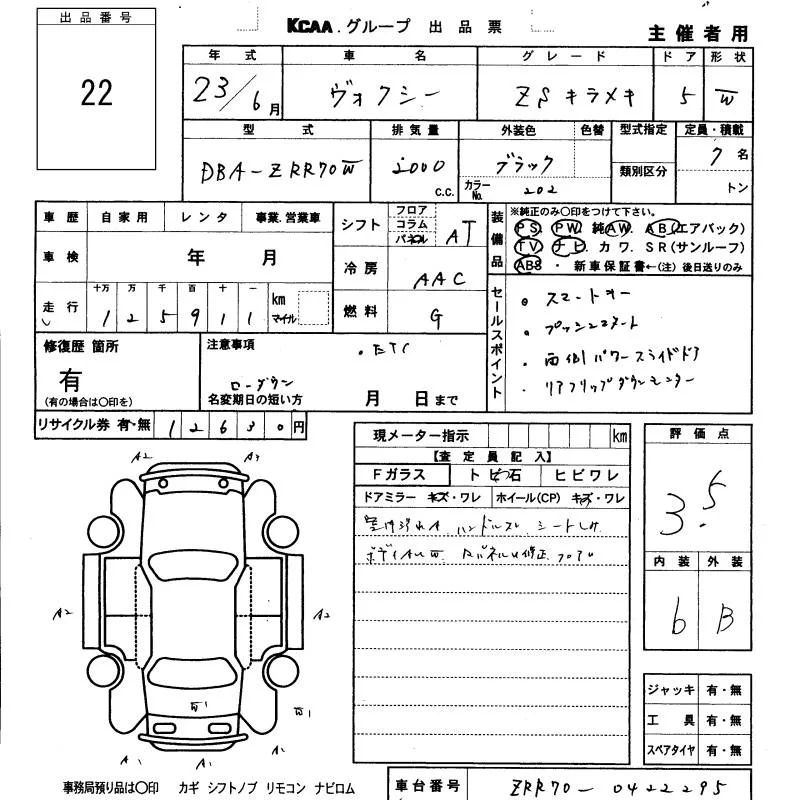 出品番号
22
KCAA.グループ 出品票
主催者用
年式 車名 グレード ドア 形状
23/6月 ヴォクシー ZSキラメキ 5 W
型式 排気量 外装色 色替 型式指定 定員・積載
DBA-ZRR70W 2000 C.C. ブラック 7名
類別区分
カラーNo. 202 トン
車歴 自家用 レンタ 事業.営業車
車検 年 月
走行 十万 万 千 百 十 一 km マイル
1 2 5 9 1 1
シフト フロア コラム パネル AT
冷房 AAC
燃料 G
装備品
※純正のみ○印をつけて下さい。
PS. PW. 純AW. AB(エアバック)
TV ナビ. カワ. SR(サンルーフ)
ABS ・ 新車保証書←(注)後日送りのみ
セールスポイント
・スマートキー
・プッシュスタート
・両側パワースライドドア
・リアフリップダウンモニター
修復歴 箇所
有
(有の場合は○印を)
注意事項
・ETC
ローダウン
名変期日の短い方 月 日まで
リサイクル券 有・無 12630円
現メーター指示 km
【査定員記入】
Fガラス トビ石 ヒビワレ
ドアミラー キズ・ワレ ホイール(CP) キズ・ワレ
ハンドルスレ シート
ボディAUW. RパネルU修正.フロアU
評価点
3.5
内装 外装
b B
ジャッキ 有・無
工具 有・無
スペアタイヤ 有・無
A2 A3
A2 A2
W1 W1
A1 A1
事務局預り品は○印 カギ シフトノブ リモコン ナビロム
車台番号 ZRR70-0422295